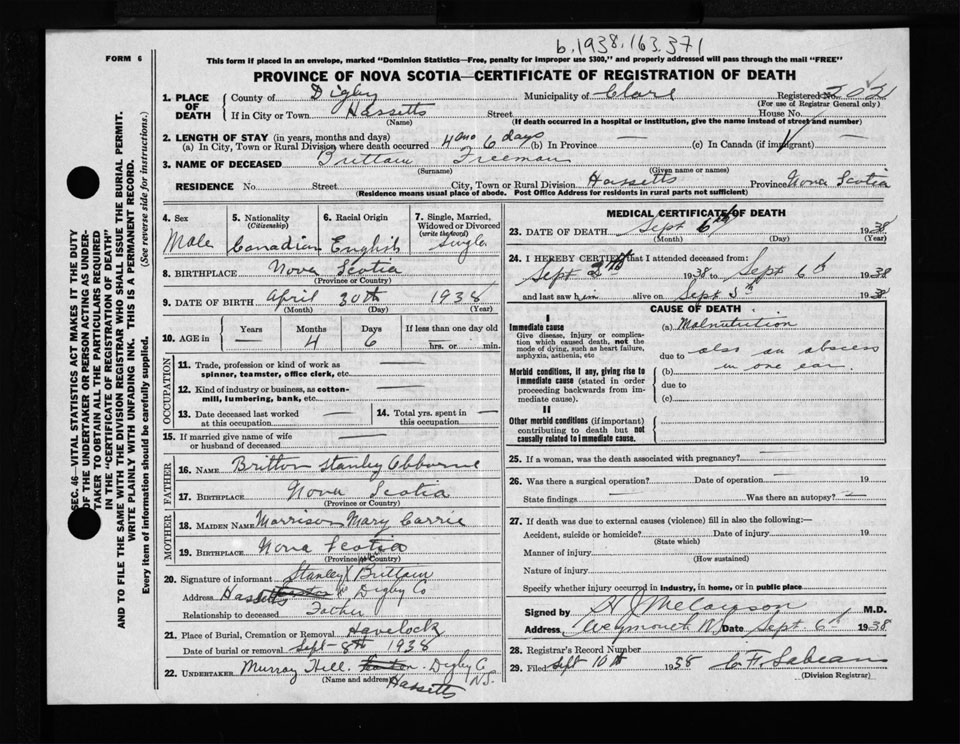 b.1938.163.371
FORM 6
This form if placed in an envelope, marked "Dominion Statistics—Free, penalty for improper use $300," and properly addressed will pass through the mail "FREE"
PROVINCE OF NOVA SCOTIA—CERTIFICATE OF REGISTRATION OF DEATH
SEC. 46—VITAL STATISTICS ACT MAKES IT THE DUTY
OF THE UNDERTAKER OR PERSON ACTING AS UNDER-
TAKER TO OBTAIN ALL THE PARTICULARS REQUIRED
IN THE "CERTIFICATE OF REGISTRATION OF DEATH"
AND TO FILE THE SAME WITH THE DIVISION REGISTRAR WHO SHALL ISSUE THE BURIAL PERMIT.
WRITE PLAINLY WITH UNFADING INK. THIS IS A PERMANENT RECORD.
Every item of information should be carefully supplied. (See reverse side for instructions.)
1. PLACE OF DEATH County of Digby Municipality of Clare Registered No. 202
(For use of Registrar General only)
If in City or Town Hassetts Street House No.
(Name) (If death occurred in a hospital or institution, give the name instead of street and number)
2. LENGTH OF STAY (in years, months and days)
(a) In City, Town or Rural Division where death occurred 4 mo 6 days (b) In Province — (c) In Canada (if immigrant)
3. NAME OF DECEASED Brittain Freeman
(Surname) (Given name or names)
RESIDENCE No. Street City, Town or Rural Division Hassetts Province Nova Scotia
(Residence means usual place of abode. Post Office Address for residents in rural parts not sufficient)
4. Sex 5. Nationality (Citizenship) 6. Racial Origin 7. Single, Married, Widowed or Divorced (write the word)
Male Canadian English Single
8. BIRTHPLACE Nova Scotia
(Province or Country)
9. DATE OF BIRTH April 30th 1938
(Month) (Day) (Year)
10. AGE in Years Months Days If less than one day old
— 4 6 hrs. or min.
OCCUPATION
11. Trade, profession or kind of work as
spinner, teamster, office clerk, etc. —
12. Kind of industry or business, as cotton-
mill, lumbering, bank, etc. —
13. Date deceased last worked at this occupation — 14. Total yrs. spent in this occupation —
15. If married give name of wife
or husband of deceased —
FATHER
16. NAME Britton Stanley
17. BIRTHPLACE Nova Scotia
(Province or Country)
MOTHER
18. MAIDEN NAME Morrison Mary Carrie
19. BIRTHPLACE Nova Scotia
(Province or Country)
20. Signature of informant Stanley Brittain
Address Hassetts Digby Co
Relationship to deceased Father
21. Place of Burial, Cremation or Removal Havelock
Date of burial or removal Sept - 8th 1938
22. UNDERTAKER Murray Hill Digby Co
(Name and address) Hassetts N.S.
MEDICAL CERTIFICATE OF DEATH
23. DATE OF DEATH Sept 6th 1938
(Month) (Day) (Year)
24. I HEREBY CERTIFY that I attended deceased from:
Sept 1938 to Sept 6th 1938
and last saw him alive on Sept 5th 1938
CAUSE OF DEATH
I
Immediate cause
Give disease, injury or complica-
tion which caused death, not the
mode of dying, such as heart failure,
asphyxia, asthenia, etc
(a) Malnutrition
due to also an abscess
(b) in one ear.
Morbid conditions, if any, giving rise to
immediate cause (stated in order
proceeding backwards from im-
mediate cause).
due to
(c)
II
Other morbid conditions (if important)
contributing to death but not
causally related to immediate cause.
25. If a woman, was the death associated with pregnancy? —
26. Was there a surgical operation? — Date of operation 19
State findings — Was there an autopsy? —
27. If death was due to external causes (violence) fill in also the following:—
Accident, suicide or homicide? Date of injury 19
(State which)
Manner of injury
(How sustained)
Nature of injury
Specify whether injury occurred in industry, in home, or in public place
Signed by M.D.
Address Weymouth NS Date Sept 6th 1938
28. Registrar's Record Number
29. Filed Sept 10th 1938 C F Sabean
(Division Registrar)